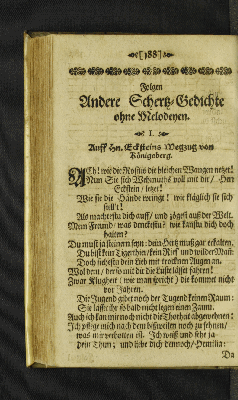 [188]
Folgen
Andere Schertz-Gedichte
ohne Melodeyen.
I.
Auff Hn. Ecksteins Wegzug von
Königsberg.
ACh! wie die Rosilis die bleichen Wangen netzet!
Nun Sie sich Wehmuths voll mit dir / Herr
Eckstein / letzet!
Wie sie die Hände ringt! wie kläglich sie sich
stellt!
Als machtestu dich auff / und zögest auß der Welt.
Mein Freund / was denckestu? wie kanstu dich doch
halten?
Du must ja steinern seyn: dein Hertz muß gar erkalten.
Du bist kein Tigerthier / kein Riff und wilder Mast:
Doch siehstu dein Lieb mit trocknen Augen an.
Wol dem / der so mit der die Lust lässet fahren!
Zwar Klugheit (wie man spricht) die kommet nicht
vor Jahren.
Die Jugend giebet noch der Tugend keinen Raum:
Sie lässt ihr so bald nicht legen einen Zaum.
Auch ich kan mir noch nicht die Thorheit abgewehnen!
Ich pflege mich nach dem bißweilen noch zu sehnen /
was mir verbotten ist. Ich weiß und sehe ja
dein Thun; und liebe dich dennoch / Demilia:
Da